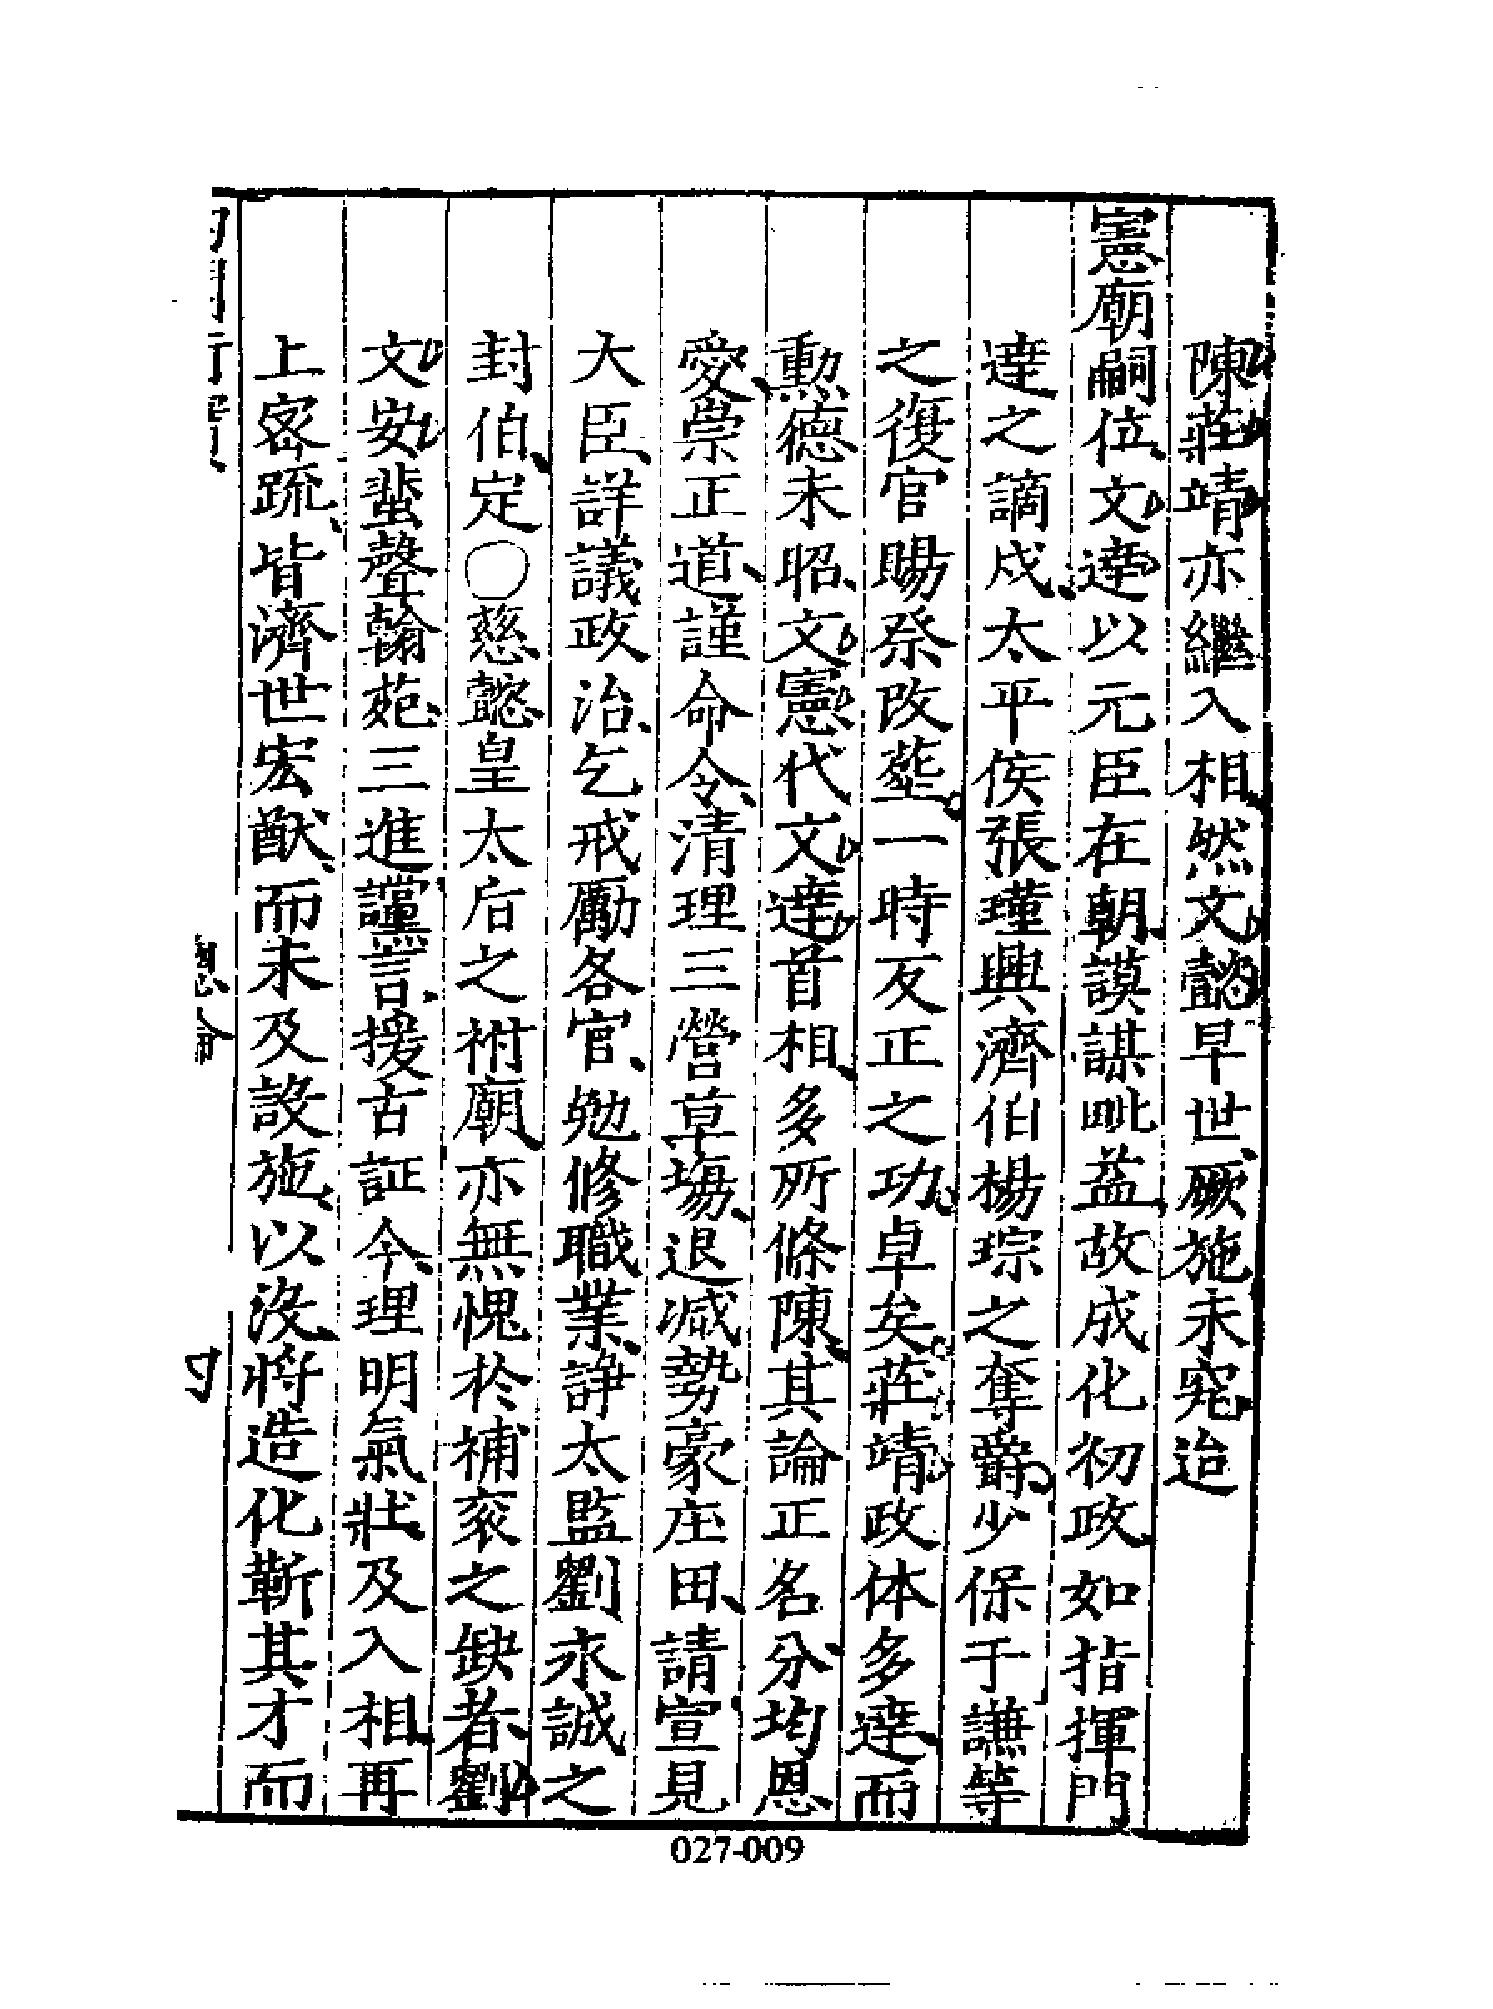 陳莊靖亦繼入相然文懿早世厥施未究迨
憲廟嗣位文達以元臣在朝謨謀毗益故成化初政如指揮門
達之謫戍太平侯張瑾興濟伯楊琮之奪爵少保于謙等
之復官賜祭改塟一時反正之功卓矣莊靖政体多達而
勲德未昭文憲代文達首相多所條陳其論正名分均恩
愛崇正道謹命令清理三營草塲退減勢豪庄田請宣見
大臣詳議政治乞戒勵各官勉修職業諍太監劉永誠之
封伯定〇慈懿皇太后之祔廟亦無愧於補衮之缺者劉
文安蜚聲翰苑三進讜言援古証今理明氣壯及入相再
上密疏皆濟世宏猷而未及設施以沒將造化靳其才而
總論
027-009